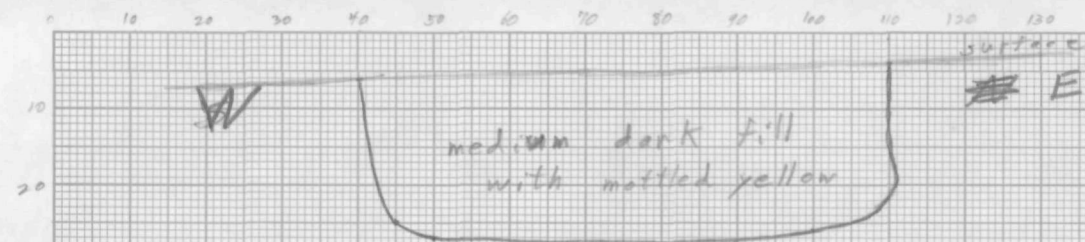 0 10 20 30 40 50 60 70 80 90 100 110 120 130
surface
W E
10
medium dark fill
with mottled yellow
20